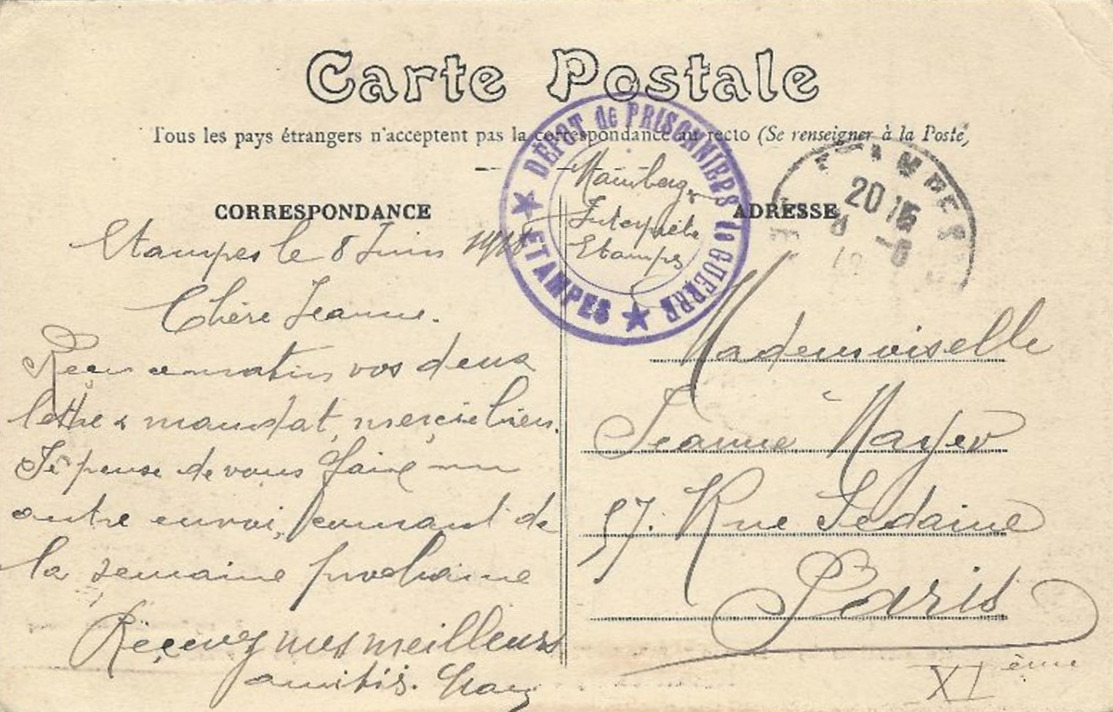 Carte Postale
Tous les pays étrangers n'acceptent pas la correspondance au recto (Se renseigner à la Poste)
CORRESPONDANCE
ADRESSE
DÉPOT de PRISONNIERS de GUERRE
★ ETAMPES ★
Interprète
Etampes
ETAMPES
20 15
8 -6
18
Etampes le 8 Juin 1918
Chère Jeanne.
Reçu ce matin vos deux
lettre & mandat, merci bien.
Je pense de vous faire un
autre envoi, courant de
la semaine prochaine
Recevez mes meilleurs
amitiés.
Mademoiselle
Jeanne Mayer
57. Rue Sedaine
Paris
XIème